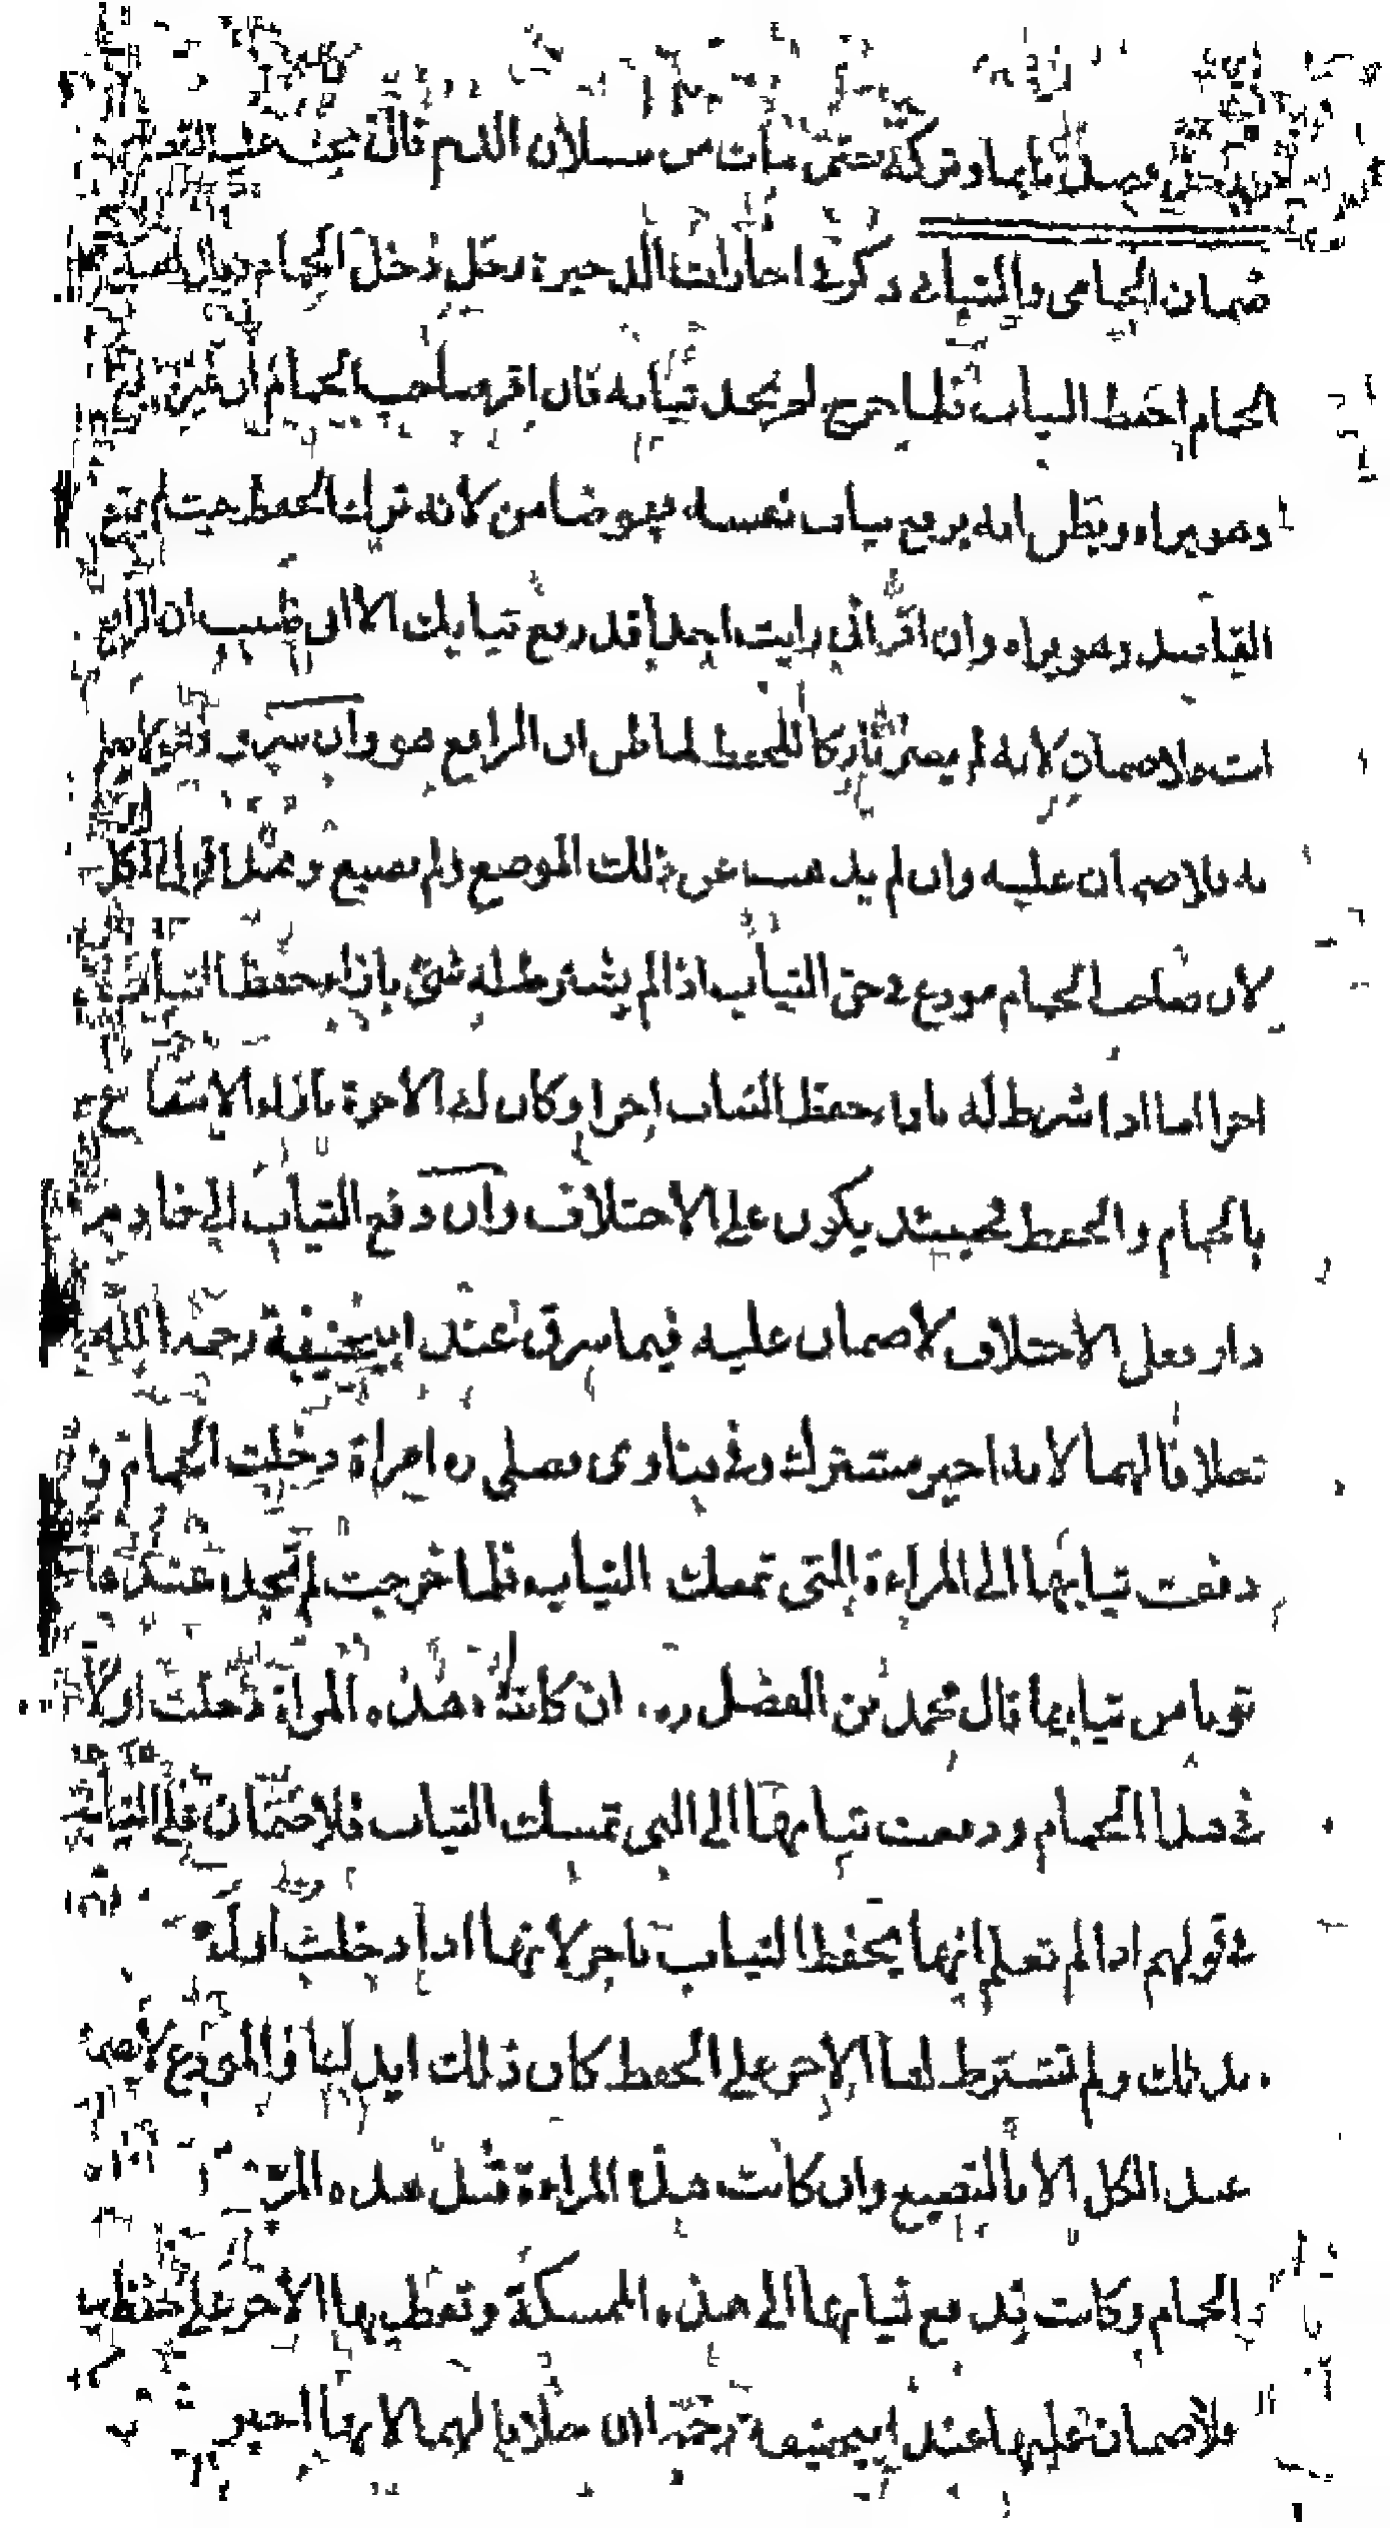 فصد نائما وتركه حتى مات من سيلان الدم قال يجب عليه القصاص
ضمان الحمامي والثيابي ذكر في اجارات الذخيرة رجل دخل الحمام وقال لصاحب
الحمام احفظ الثياب فلما خرج لم يجد ثيابه فان اقر صاحب الحمام ان غيره رفع
وهو يراه ويظن انه يرفع ثياب نفسه فهو ضامن لانه ترك الحفظ حيث لم يمنع
القاصد وهو يراه وان اقر اني رايت احدا قد رفع ثيابك الا اني ظننت ان الرافع
انت فلا ضمان لانه لم يصر تاركا للحفظ لما ظن ان الرافع هو وان سرق وهو لا يعلم
به فلا ضمان عليه وان لم يذهب عن ذلك الموضع ولم يضيع وهذا قول الكل
لان صاحب الحمام مودع في حق الثياب اذا لم يشترط له شئ بازاء حفظ الثياب
اجرا اما اذا شرط له بازاء حفظ الثياب اجرا وكان له الاجرة بازاء الانتفاع
بالحمام والحفظ فحينئذ يكون على الاختلاف وان دفع الثياب الى
فعلى الاختلاف لا ضمان عليه فيما سرق عند ابي حنيفة رحمه الله
خلافا لهما لانه اجير مشترك وفي فتاوى فضلي ره امراة دخلت الحمام و
دفعت ثيابها الى المراءة التي تمسك الثياب فلما خرجت لم تجد عندها
ثوبا من ثيابها قال محمد بن الفضل ره ان كانت هذه المراة دخلت اولا
في هذا الحمام ودفعت ثيابها الى التي تمسك الثياب فلا ضمان على الثيابية
في قولهم اذا لم تعلم انها يحفظ الثياب باجر لانها اذا دخلت اول
بذلك ولم تشترط لها الاجر على الحفظ كان ذلك ايداعا والمودع لا يضمن
عند الكل الا بالتضييع وان كانت هذه المراءة قبل هذه المرة
الحمام وكانت تدفع ثيابها الى هذه الممسكة وتعطيها الاجر على حفظ
فلا ضمان عليها عند ابي حنيفة رحمه الله خلافا لهما لانها اجير